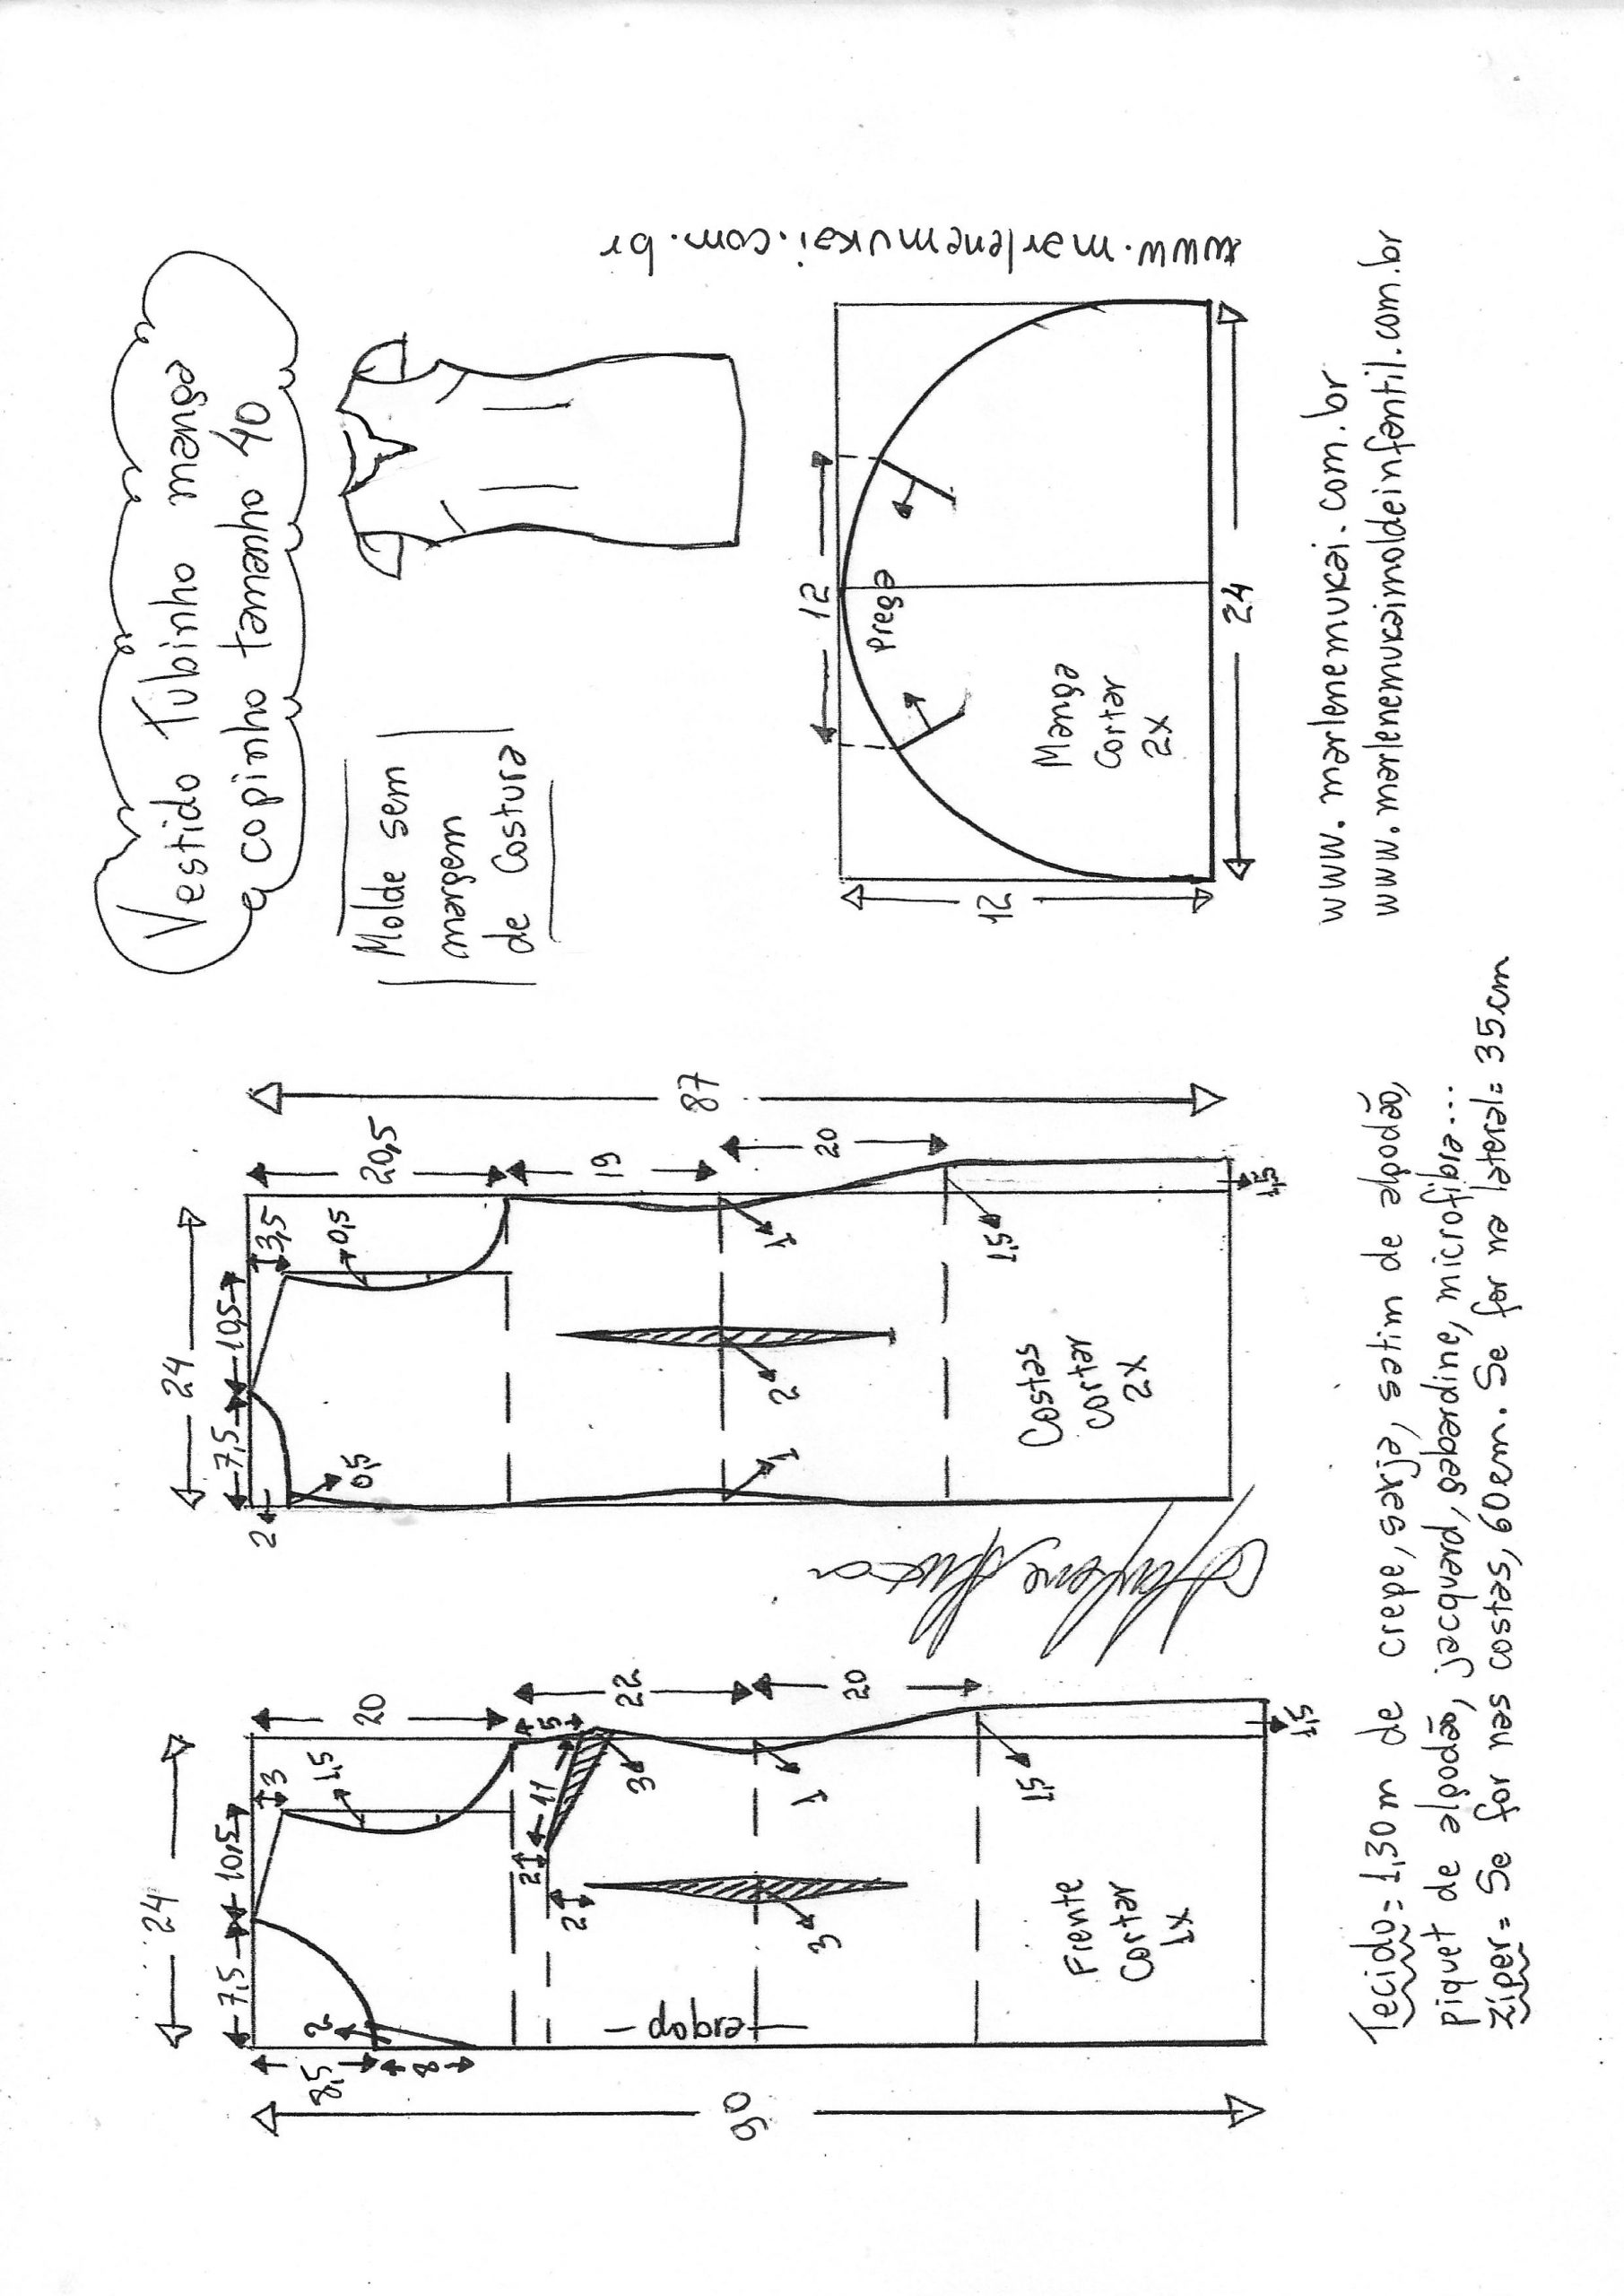 Vestido Tubinho manga
copinho tamanho 40
Molde sem
margem
de Costura
www.marlenemukai.com.br
24
7,5
10,5
3
20
1,5
8,5
2
8
5
11
3
21
2
22
1
3
20
dobra
1,5
Frente
Cortar
1x
1,5
90
24
7,5
10,5
3,5
20,5
0,5
2
0,5
19
1
2
1
20
1,5
Costas
Cortar
2x
1,5
87
12
Prega
12
Manga
Cortar
2x
24
www.marlenemukai.com.br
www.marlenemukaimoldeinfantil.com.br
Tecido = 1,30m de crepe, sarja, setim de algodão,
piquet de algodão, jacquard, gabardine, microfibra...
Zíper = Se for nas costas, 60cm. Se for na lateral = 35cm